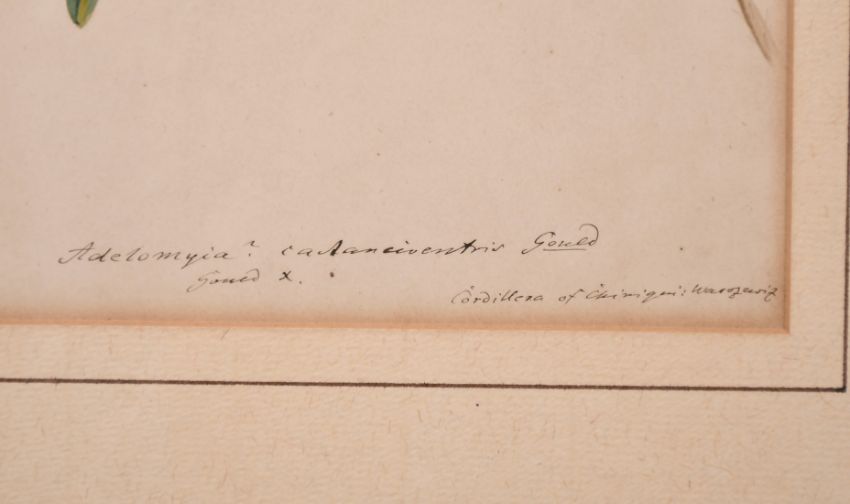 Adelomyia? castaneiventris Gould
Gould x.
Cordillera of Chiriqui: Warszewiz